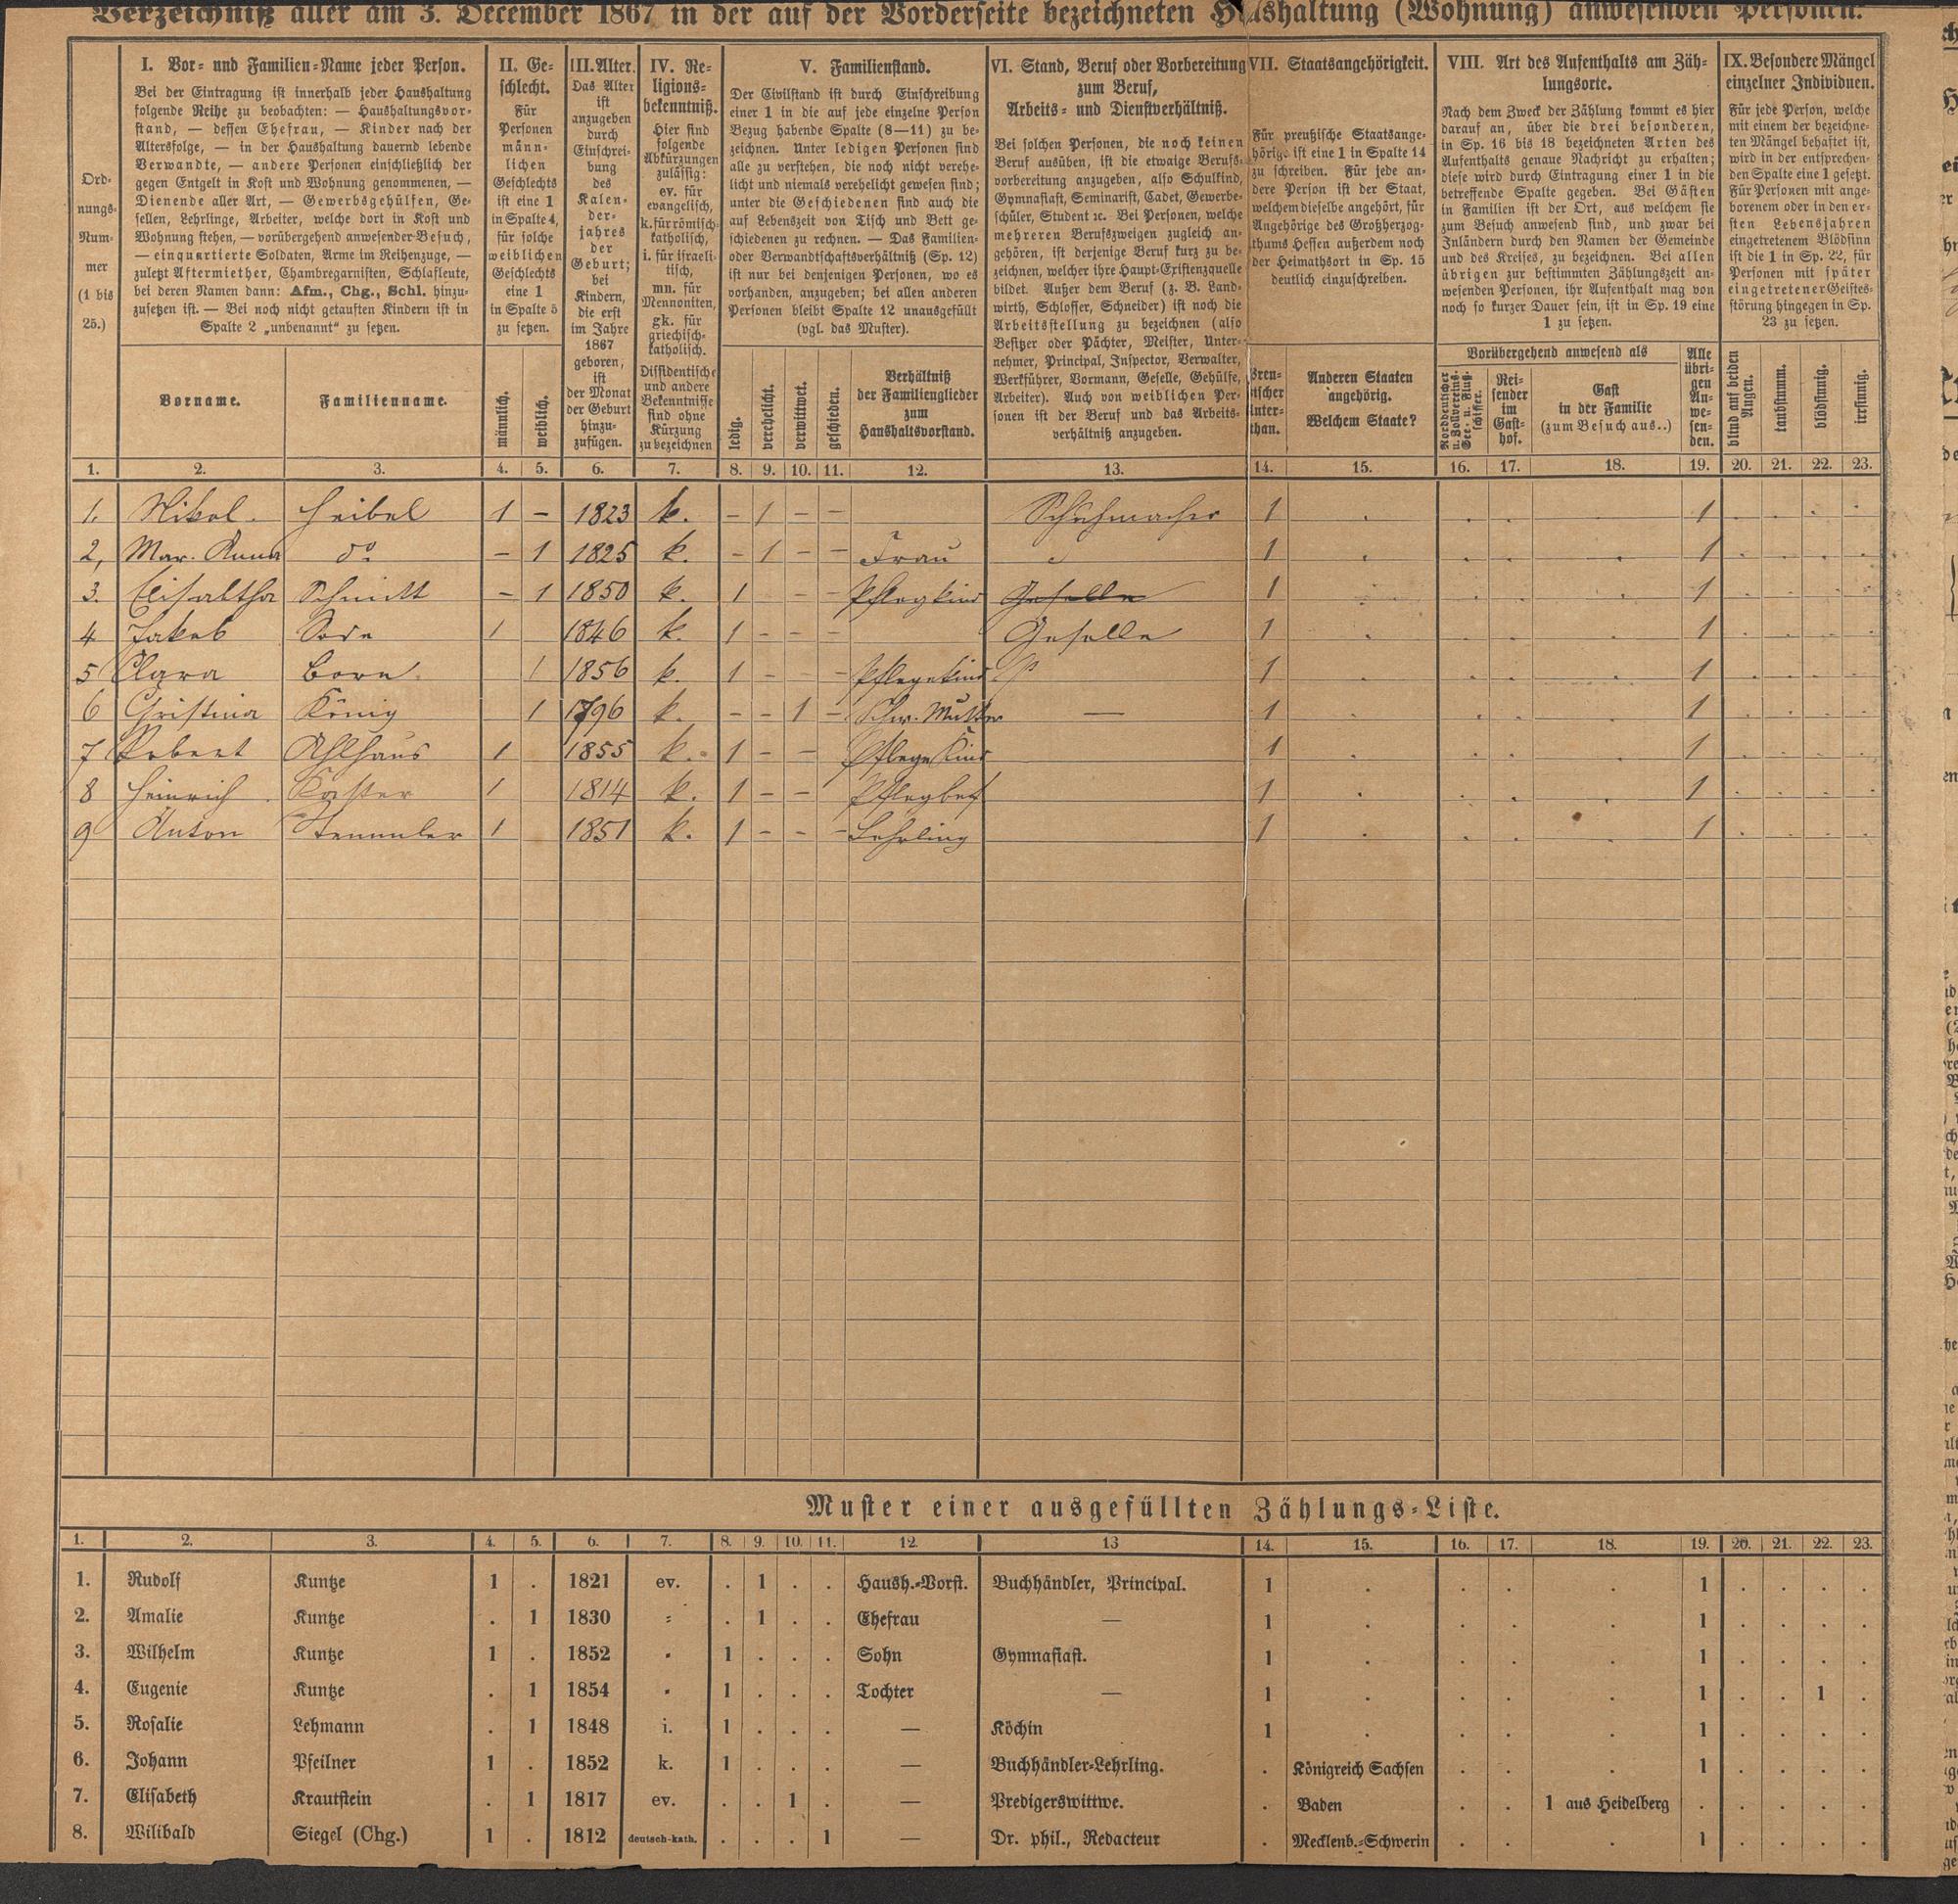 Verzeichniß aller am 3. December 1867 in der auf der Vorderseite bezeichneten Haushaltung (Wohnung) anwesenden Personen.
Ord-
nungs-
Num-
mer
(1 bis
25.)
I. Vor- und Familien-Name jeder Person.
Bei der Eintragung ist innerhalb jeder Haushaltung
folgende Reihe zu beobachten: — Haushaltungsvor-
stand, — dessen Ehefrau, — Kinder nach der
Altersfolge, — in der Haushaltung dauernd lebende
Verwandte, — andere Personen einschließlich der
gegen Entgelt in Kost und Wohnung genommenen, —
Dienende aller Art, — Gewerbsgehülfen, Ge-
sellen, Lehrlinge, Arbeiter, welche dort in Kost und
Wohnung stehen, — vorübergehend anwesender Besuch,
— einquartierte Soldaten, Arme im Reihenzuge, —
zuletzt Aftermiether, Chambregarnisten, Schlafleute,
bei deren Namen dann: Afm., Chg., Schl. hinzu-
zusetzen ist. — Bei noch nicht getauften Kindern ist in
Spalte 2 „unbenannt“ zu setzen.
Vorname.
Familienname.
II. Ge-
schlecht.
Für
Personen
männ-
lichen
Geschlechts
ist eine 1
in Spalte 4,
für solche
weiblichen
Geschlechts
eine 1
in Spalte 5
zu setzen.
männlich.
weiblich.
III. Alter.
Das Alter
ist
anzugeben
durch
Einschrei-
bung
des
Kalen-
der-
jahres
der
Geburt;
bei
Kindern,
die erst
im Jahre
1867
geboren,
ist
der Monat
der Geburt
hinzu-
zufügen.
IV. Re-
ligions-
bekenntniß.
Hier sind
folgende
Abkürzungen
zulässig:
ev. für
evangelisch,
k. für römisch-
katholisch,
i. für israeli-
tisch,
mn. für
Mennoniten,
gk. für
griechisch-
katholisch.
Dissidentische
und andere
Bekenntnisse
sind ohne
Kürzung
zu bezeichnen
V. Familienstand.
Der Civilstand ist durch Einschreibung
einer 1 in die auf jede einzelne Person
Bezug habende Spalte (8—11) zu be-
zeichnen. Unter ledigen Personen sind
alle zu verstehen, die noch nicht verehe-
licht und niemals verehelicht gewesen sind;
unter die Geschiedenen sind auch die
auf Lebenszeit von Tisch und Bett ge-
schiedenen zu rechnen. — Das Familien-
oder Verwandtschaftsverhältniß (Sp. 12)
ist nur bei denjenigen Personen, wo es
vorhanden, anzugeben; bei allen anderen
Personen bleibt Spalte 12 unausgefüllt
(vgl. das Muster).
ledig.
verehelicht.
verwittwet.
geschieden.
Verhältniß
der Familienglieder
zum
Haushaltsvorstand.
VI. Stand, Beruf oder Vorbereitung
zum Beruf,
Arbeits- und Dienstverhältniß.
Bei solchen Personen, die noch keinen
Beruf ausüben, ist die etwaige Berufs-
vorbereitung anzugeben, also Schulkind,
Gymnasiast, Seminarist, Cadet, Gewerbe-
schüler, Student ꝛc. Bei Personen, welche
mehreren Berufszweigen zugleich an-
gehören, ist derjenige Beruf kurz zu be-
zeichnen, welcher ihre Haupt-Existenzquelle
bildet. Außer dem Beruf (z. B. Land-
wirth, Schlosser, Schneider) ist noch die
Arbeitsstellung zu bezeichnen (also
Besitzer oder Pächter, Meister, Unter-
nehmer, Principal, Inspector, Verwalter,
Werkführer, Vormann, Geselle, Gehülfe,
Arbeiter). Auch von weiblichen Per-
sonen ist der Beruf und das Arbeits-
verhältniß anzugeben.
VII. Staatsangehörigkeit.
Für preußische Staatsange-
hörige ist eine 1 in Spalte 14
zu schreiben. Für jede an-
dere Person ist der Staat,
welchem dieselbe angehört, für
Angehörige des Großherzog-
thums Hessen außerdem noch
der Heimathsort in Sp. 15
deutlich einzuschreiben.
Preu-
ßischer
Unter-
than.
Anderen Staaten
angehörig.
Welchem Staate?
VIII. Art des Aufenthalts am Zäh-
lungsorte.
Nach dem Zweck der Zählung kommt es hier
darauf an, über die drei besonderen,
in Sp. 16 bis 18 bezeichneten Arten des
Aufenthalts genaue Nachricht zu erhalten;
diese wird durch Eintragung einer 1 in die
betreffende Spalte gegeben. Bei Gästen
in Familien ist der Ort, aus welchem sie
zum Besuch anwesend sind, und zwar bei
Inländern durch den Namen der Gemeinde
und des Kreises, zu bezeichnen. Bei allen
übrigen zur bestimmten Zählungszeit an-
wesenden Personen, ihr Aufenthalt mag von
noch so kurzer Dauer sein, ist in Sp. 19 eine
1 zu setzen.
Vorübergehend anwesend als
Norddeutscher
u. Zollvereins-
See- u. Fluß-
schiffer.
Rei-
sender
im
Gast-
hof.
Gast
in der Familie
(zum Besuch aus..)
Alle
übri-
gen
An-
we-
sen-
den.
IX. Besondere Mängel
einzelner Individuen.
Für jede Person, welche
mit einem der bezeichne-
ten Mängel behaftet ist,
wird in der entsprechen-
den Spalte eine 1 gesetzt.
Für Personen mit ange-
borenem oder in den er-
sten Lebensjahren
eingetretenem Blödsinn
ist die 1 in Sp. 22, für
Personen mit später
eingetretener Geistes-
störung hingegen in Sp.
23 zu setzen.
blind auf beiden
Augen.
taubstumm.
blödsinnig.
irrsinnig.
1. 2. 3. 4. 5. 6. 7. 8. 9. 10. 11. 12. 13. 14. 15. 16. 17. 18. 19. 20. 21. 22. 23.
1. Nikol. Heibel 1 – 1823 k. – 1 – – Schuhmacher 1 . . . . 1 . . . .
2, Mar. Anna do – 1 1825 k. – 1 – – Frau 1 . . . . 1 . . . .
3. Elisabetha Schmitt – 1 1850 k. 1 Pflegkind Geselle 1 . . . . 1 . . . .
4 Jakob 1 1846 k. 1 – – – Geselle 1 . . . . 1 . . . .
5 Clara Born 1 1856 k. 1 – – Pflegekind 1 . . . . 1 . . . .
6 Christina König 1 1796 k. – – 1 – Schw. Mutter — 1 . . . . 1 . . . .
7 Robert Ahlhaus 1 1855 k. 1 – – Pflege Kind 1 . . . . 1 . . . .
8 Heinrich Kaster 1 1814 k. 1 – – 1 . . . . 1 . . . .
9 Anton Stemmler 1 1851 k. 1 – – – Lehrling 1 . . . . 1 . . . .
Muster einer ausgefüllten Zählungs-Liste.
1. 2. 3. 4. 5. 6. 7. 8. 9. 10. 11. 12. 13 14. 15. 16. 17. 18. 19. 20. 21. 22. 23.
1. Rudolf Kuntze 1 . 1821 ev. . 1 . . Haush.-Vorst. Buchhändler, Principal. 1 . . . . 1 . . . .
2. Amalie Kuntze . 1 1830 = . 1 . . Ehefrau — 1 . . . . 1 . . . .
3. Wilhelm Kuntze 1 . 1852 „ 1 . . . Sohn Gymnasiast. 1 . . . . 1 . . . .
4. Eugenie Kuntze . 1 1854 „ 1 . . . Tochter — 1 . . . . 1 . . 1 .
5. Rosalie Lehmann . 1 1848 i. 1 . . . — Köchin 1 . . . . 1 . . . .
6. Johann Pfeilner 1 . 1852 k. 1 . . . — Buchhändler-Lehrling. . Königreich Sachsen . . . 1 . . . .
7. Elisabeth Krautstein . 1 1817 ev. . . 1 . — Predigerswittwe. . Baden . . 1 aus Heidelberg . . . . .
8. Wilibald Siegel (Chg.) 1 . 1812 deutsch-kath. . . . 1 — Dr. phil., Redacteur . Mecklenb.-Schwerin . . . 1 . . . .